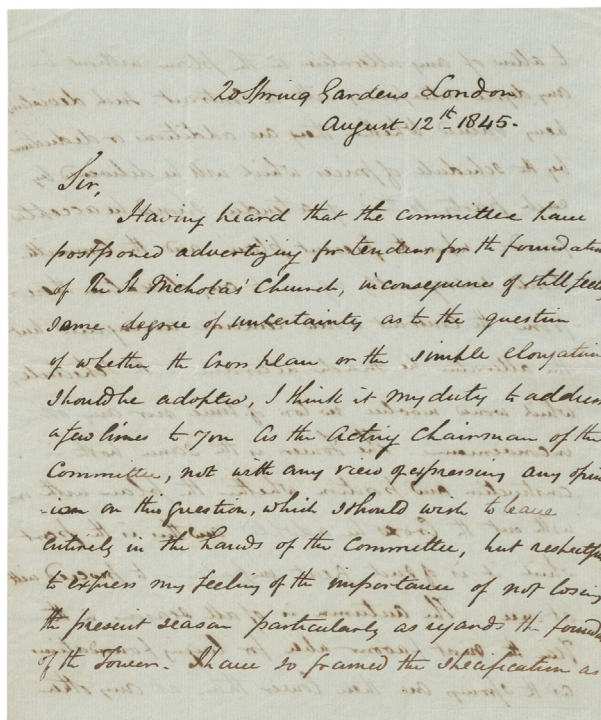 20 Spring Gardens London
August 12th 1845.
Sir,
Having heard that the Committee have
postponed advertizing for tenders for the foundation
of the St Nicholas' Church, in consequence of still feeling
some degree of uncertainty as to the question
of whether the Cross plan or the simple elongation
should be adopted, I think it my duty to address
a few lines to you as the Acting Chairman of the
Committee, not with any view of expressing any opin
-ion on this question, which I should wish to leave
entirely in the hands of the Committee, but respectfully
to express my feeling of the importance of not losing
the present season particularly as regards the found
of the Tower. I have so framed the specification as